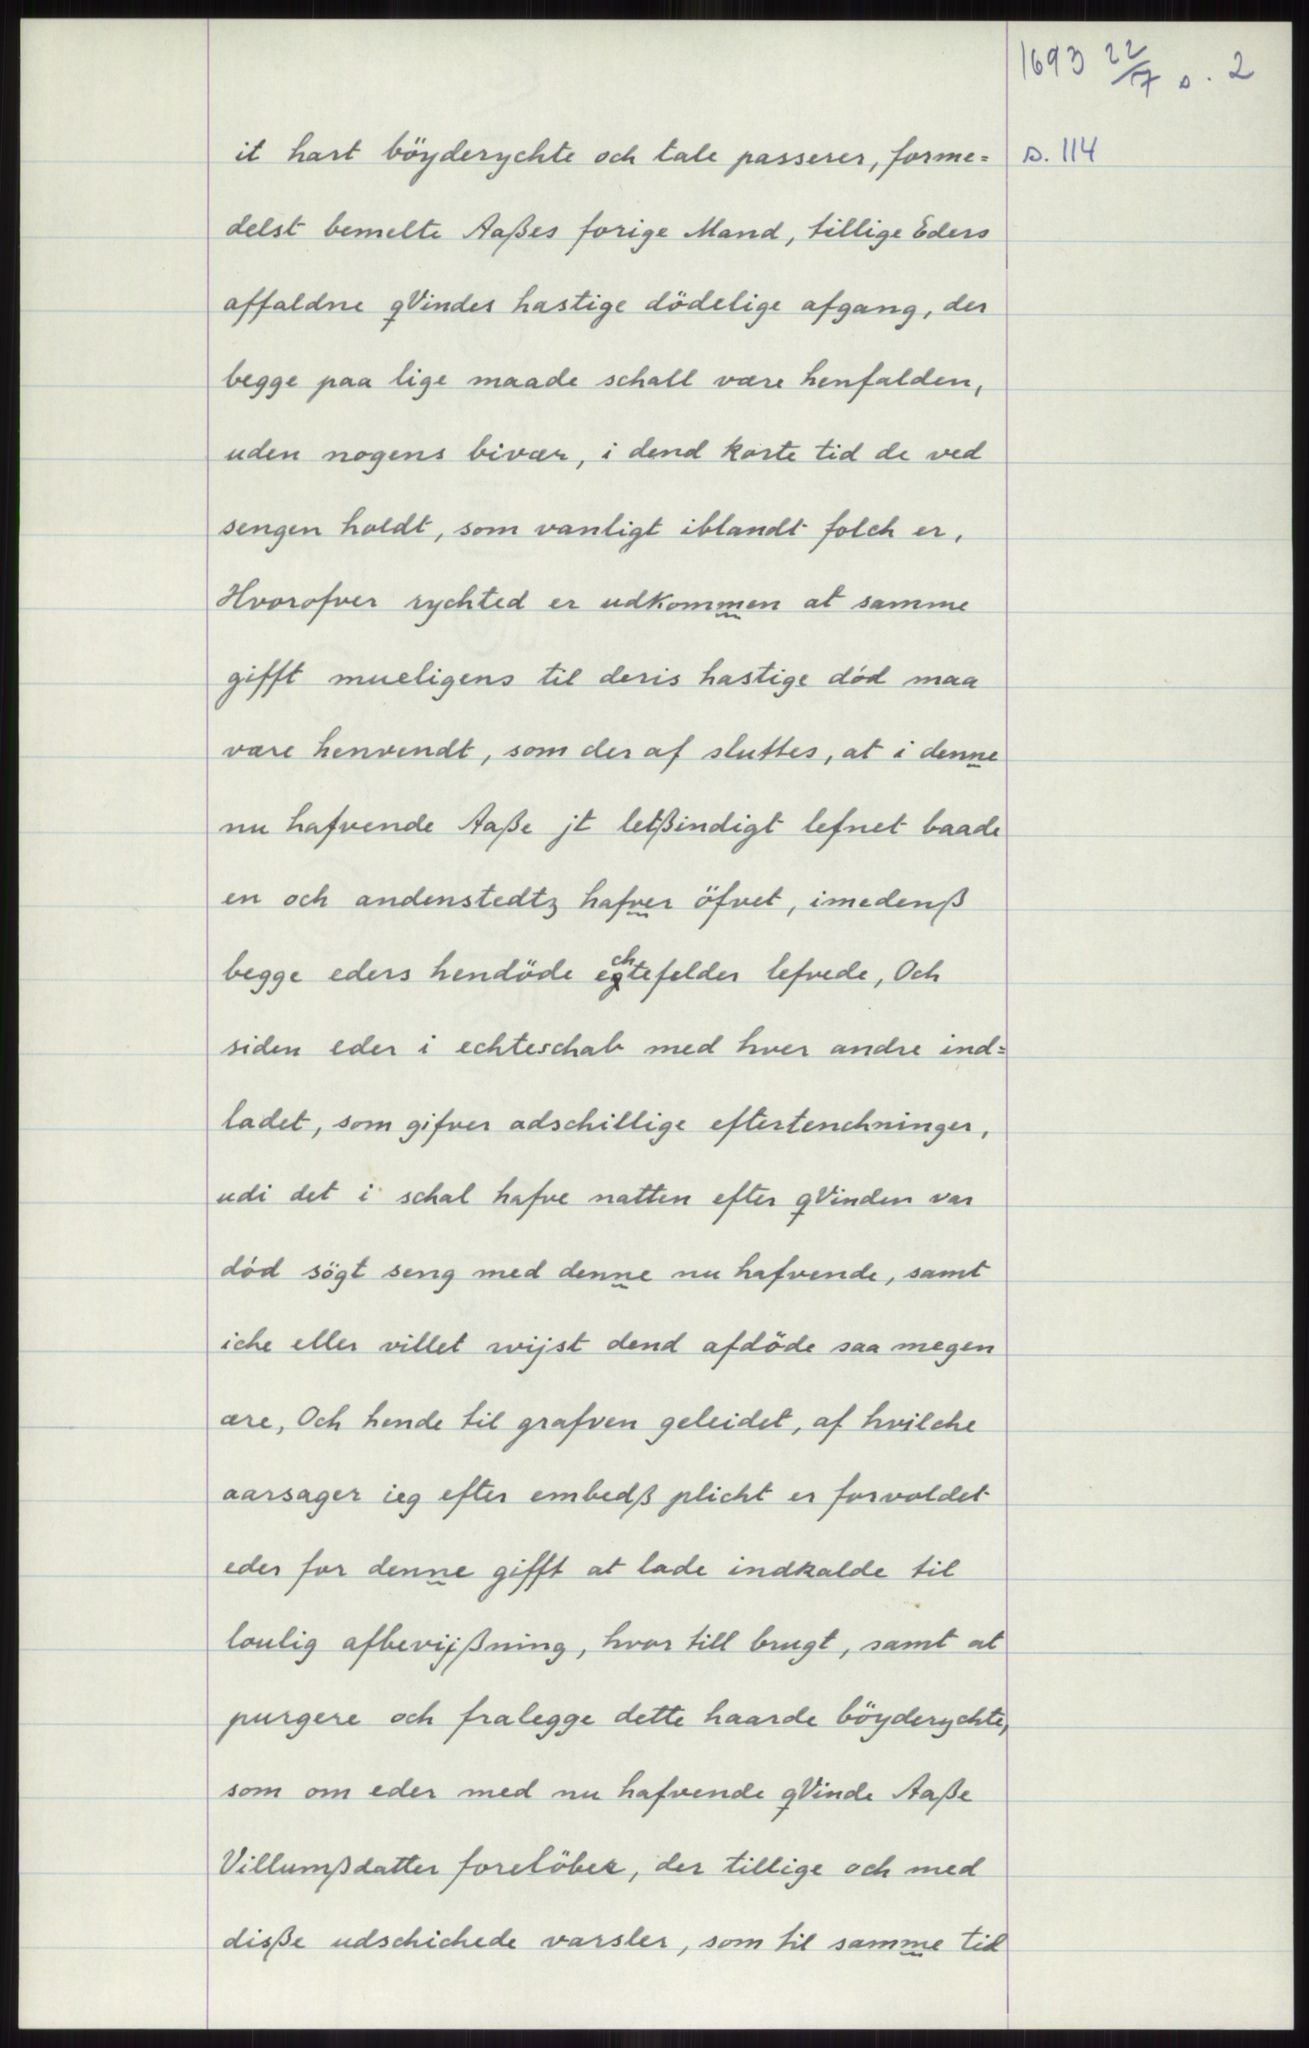 1693 22/7 s. 2
it hart böyderychte och tale passerer, forme= s. 114
delst bemelte Aaßes forige Mand, tillige Eders
affaldne qVindes hastige dödelige afgang, der
begge paa lige maade schall være henfalden,
uden nogens bivær, i dend korte tid de ved
sengen holdt, som vanligt iblandt folch er,
Hvorofver rychted er udkommen at samme
gifft mueligens til deris hastige död maa
være henvendt, som der af sluttes, at i denne
nu hafvende Aaße jt letßindigt lefnet baade
en och andenstedtz hafver öfvet, imedenß
begge eders hendöde echtefelder lefvede, Och
siden eder i echteschab med hver andre ind=
ladet, som gifver adschillige eftertenchninger,
udi det i schal hafve natten efter qVinden var
död sögt seng med denne nu hafvende, samt
iche eller villet wijst dend afdöde saa megen
ære, Och hende til grafven geleidet, af hvilche
aarsager ieg efter embedß plicht er forvoldet
eder for denne gifft at lade indkalde til
loulig afbevijßning, hvor till brugt, samt at
purgere och fralegge dette haarde böyderychte,
som om eder med nu hafvende qVinde Aaße
Villumßdatter forelöber, der tillige och med
disße udschichede varsler, som til samme tid